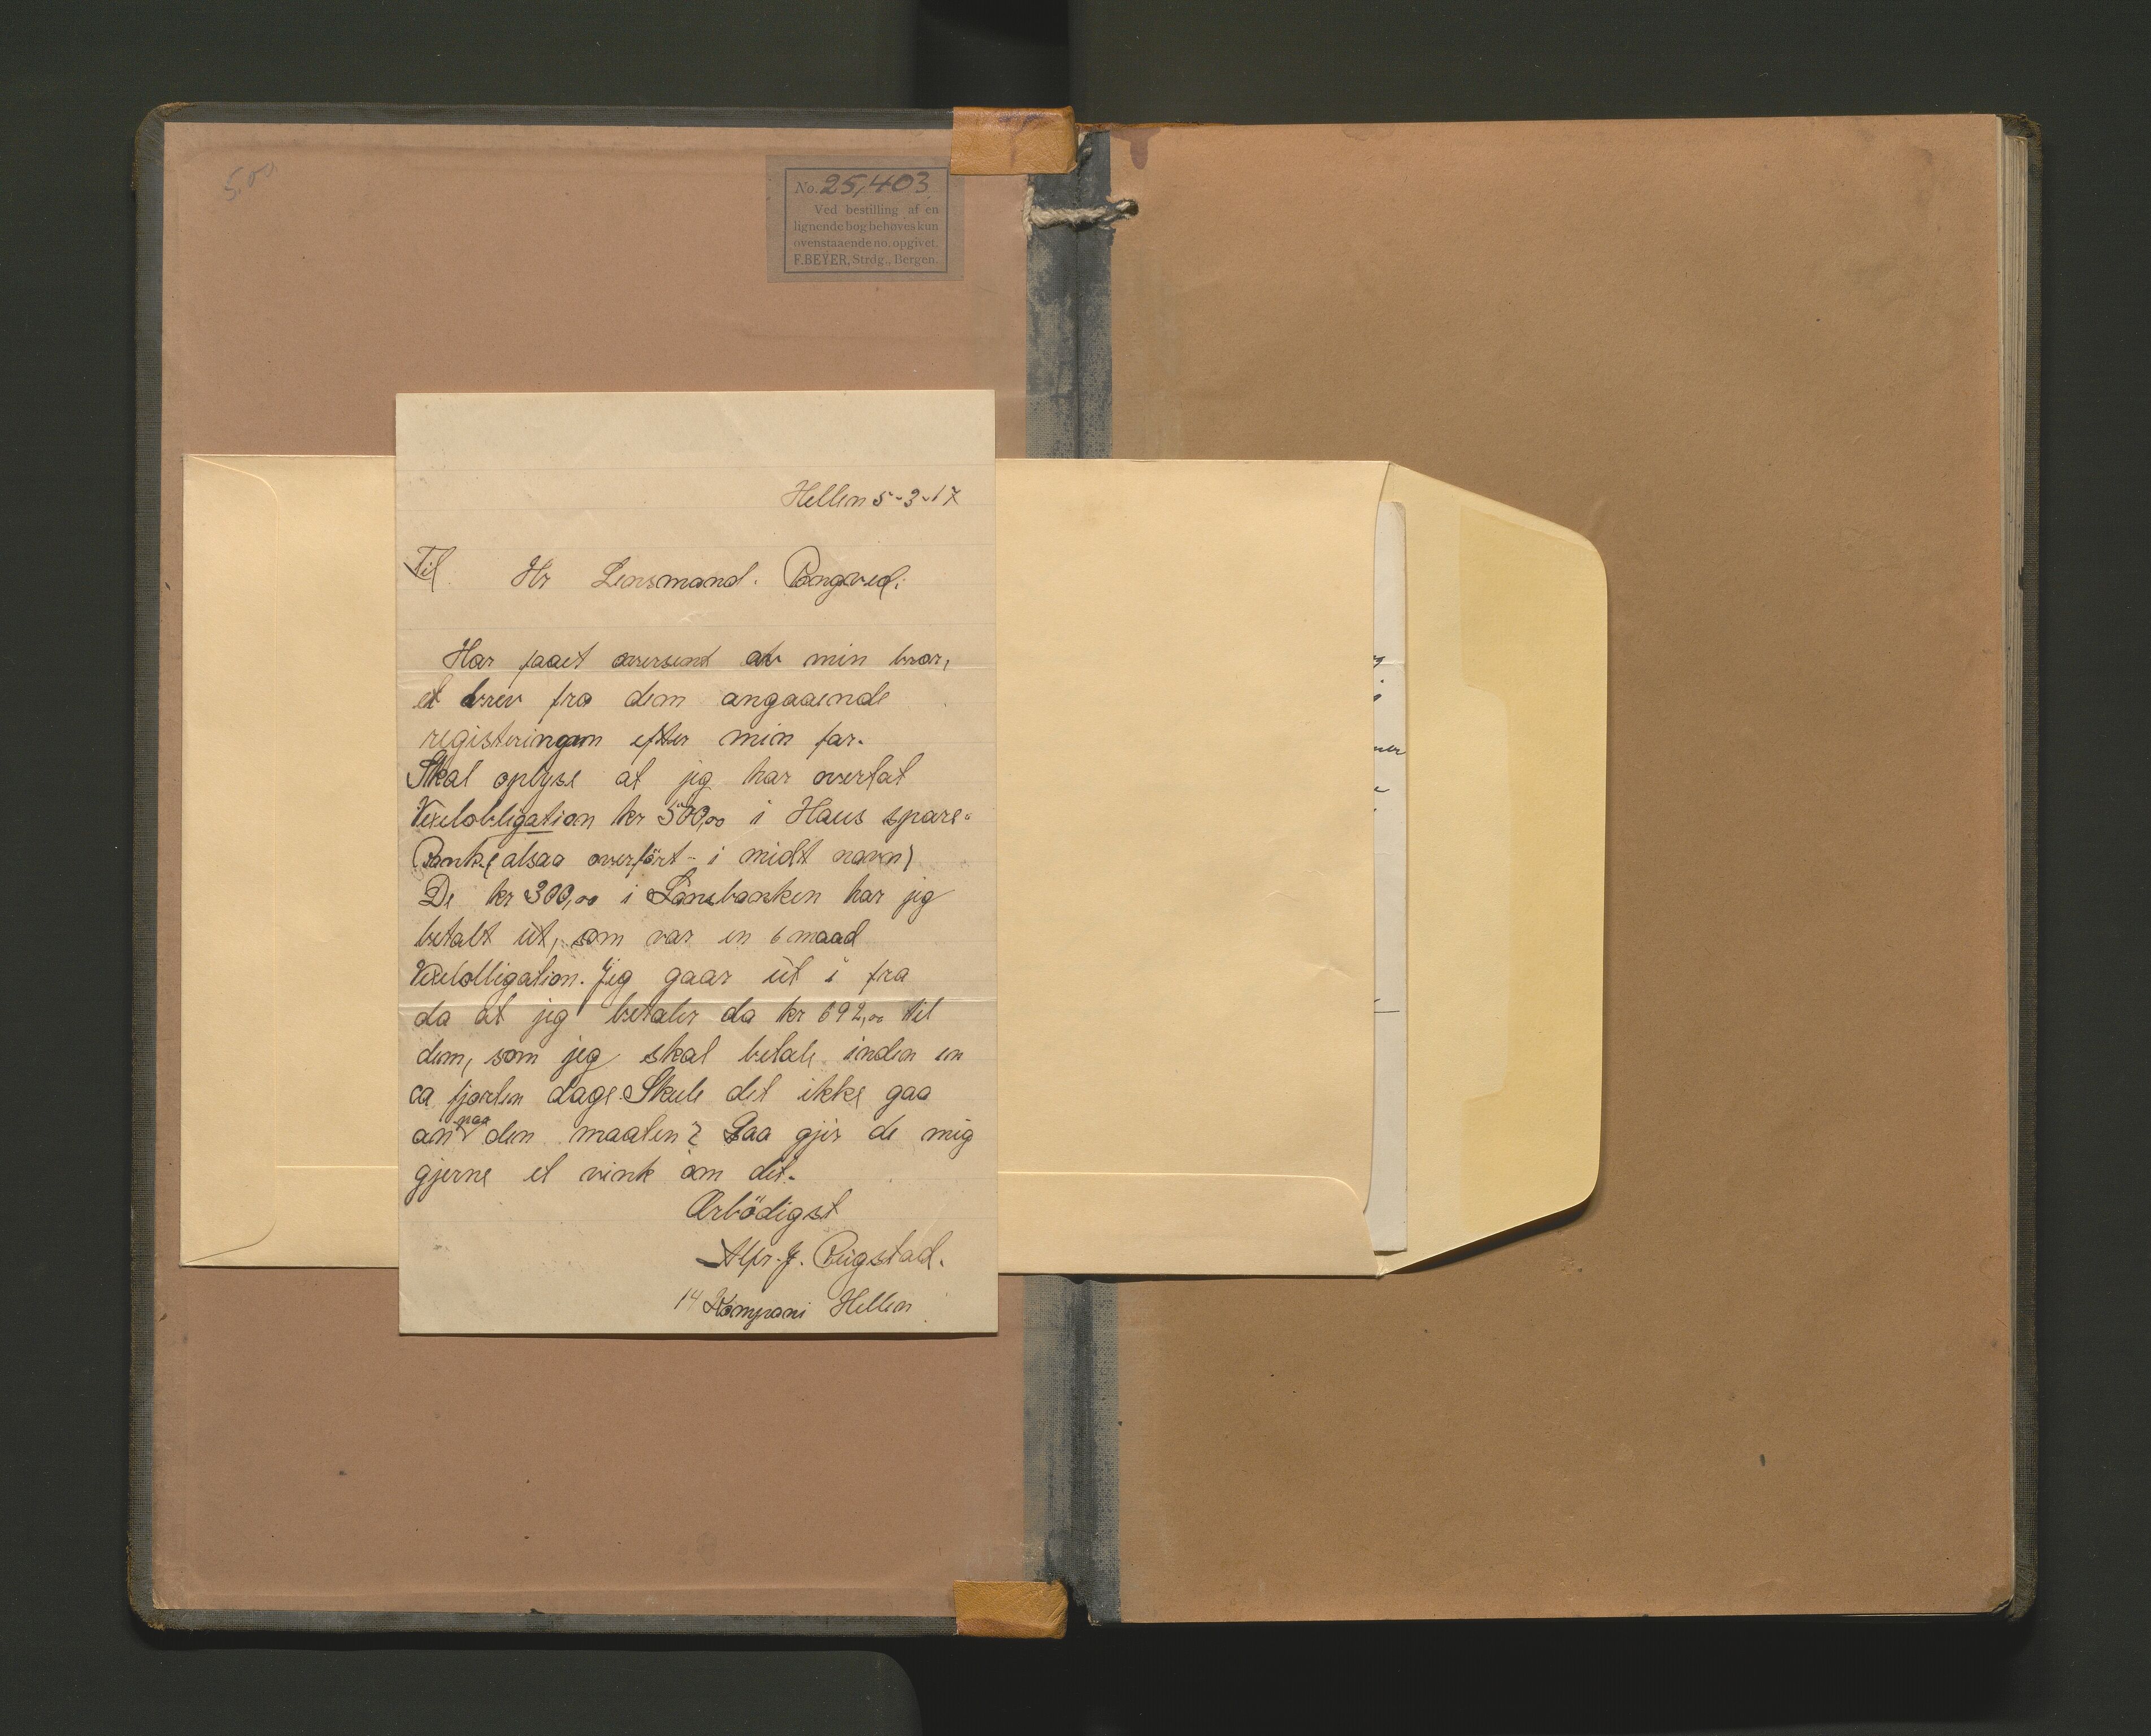 5.00
No. 25,403
Ved bestilling af en
lignende bog behøves kun
ovenstaaende no. opgivet.
F. BEYER, Strdg., Bergen.
Hellen 5-3-17
Til Hr Lensmand.
Har faaet oversent av min bror,
et brev fra dem angaaende
registeringen efter min far.
Skal oplyse at jeg har overtat
Vexelobligation kr 500,00 i Haus spare-
Bank (alsaa overfört - i midt navn)
De kr 300,00 i Lånebanken har jeg
betalt ut, som var en 6 maad
Vexelolligation. Jeg gaar ut i fra
da at jeg betaler da kr 692,00 til
dem, som jeg skal betale inden en
ca fjorten dage. Skule det ikke gaa
an paa den maaten? Saa gjir de mig
gjerne et vink om det.
Ærbödigst
J. Rugstad.
14 Kompani Hellen